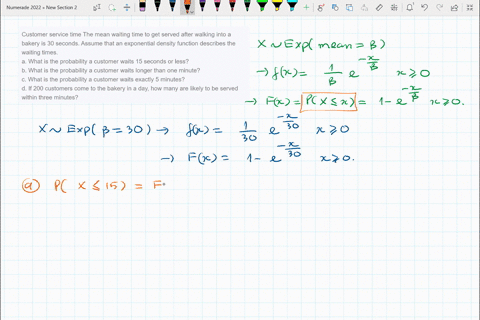 Numerade 2022 » New Section 2
Customer service time The mean waiting time to get served after walking into a
bakery is 30 seconds. Assume that an exponential density function describes the
waiting times.
a. What is the probability a customer waits 15 seconds or less?
b. What is the probability a customer waits longer than one minute?
c. What is the probability a customer waits exactly 5 minutes?
d. If 200 customers come to the bakery in a day, how many are likely to be served
within three minutes?
X ~ Exp( mean = β )
→ f(x) = 1/β e^(-x/β) x ≥ 0
→ F(x) = P(X ≤ x) = 1 - e^(-x/β) x ≥ 0.
X ~ Exp( β = 30 ) → f(x) = 1/30 e^(-x/30) x ≥ 0
→ F(x) = 1 - e^(-x/30) x ≥ 0.
(a) P( X ≤ 15 ) = F